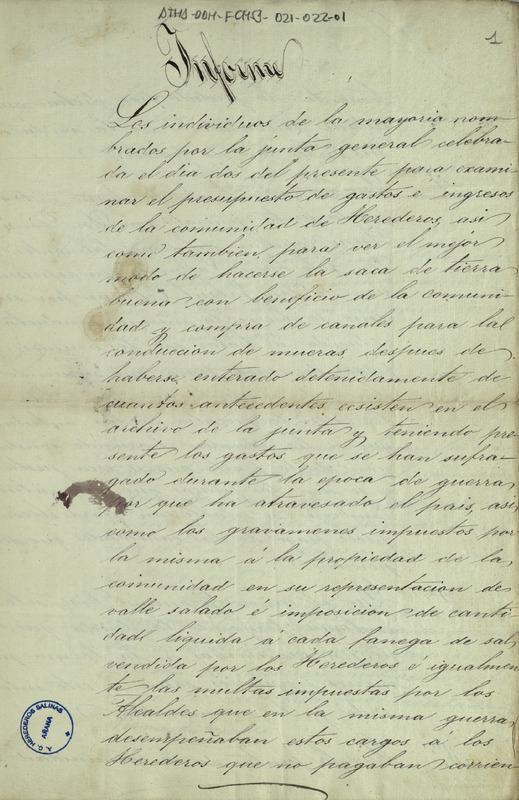 ATHA-DDH-FCHS-021-022-01
1
Informe
Los individuos de la mayoria nom-
brados por la junta general celebra-
da el dia dos del presente para exami-
nar el presupuesto de gastos e ingresos
de la comunidad de Herederos, asi
como tambien para ver el mejor
modo de hacerse la saca de tierra
buena con beneficio de la comuni-
dad y compra de canales para la
conduccion de mueras, despues de
haberse enterado detenidamente de
cuantos antecedentes ecsisten en el
archivo de la junta y teniendo pre-
sente los gastos que se han sufra-
gado durante la epoca de guerra
por que ha atravesado el pais, asi
como los gravamenes impuestos por
la misma á la propiedad de la
comunidad en su representacion de
valle salado é imposicion de canti-
dad liquida á cada fanega de sal
vendida por los Herederos e igualmen-
te las multas impuestas por los
Alcaldes que en la misma guerra
desempeñaban estos cargos á los
Herederos que no pagaban corrien-
HEREDEROS SALINAS
AÑANA